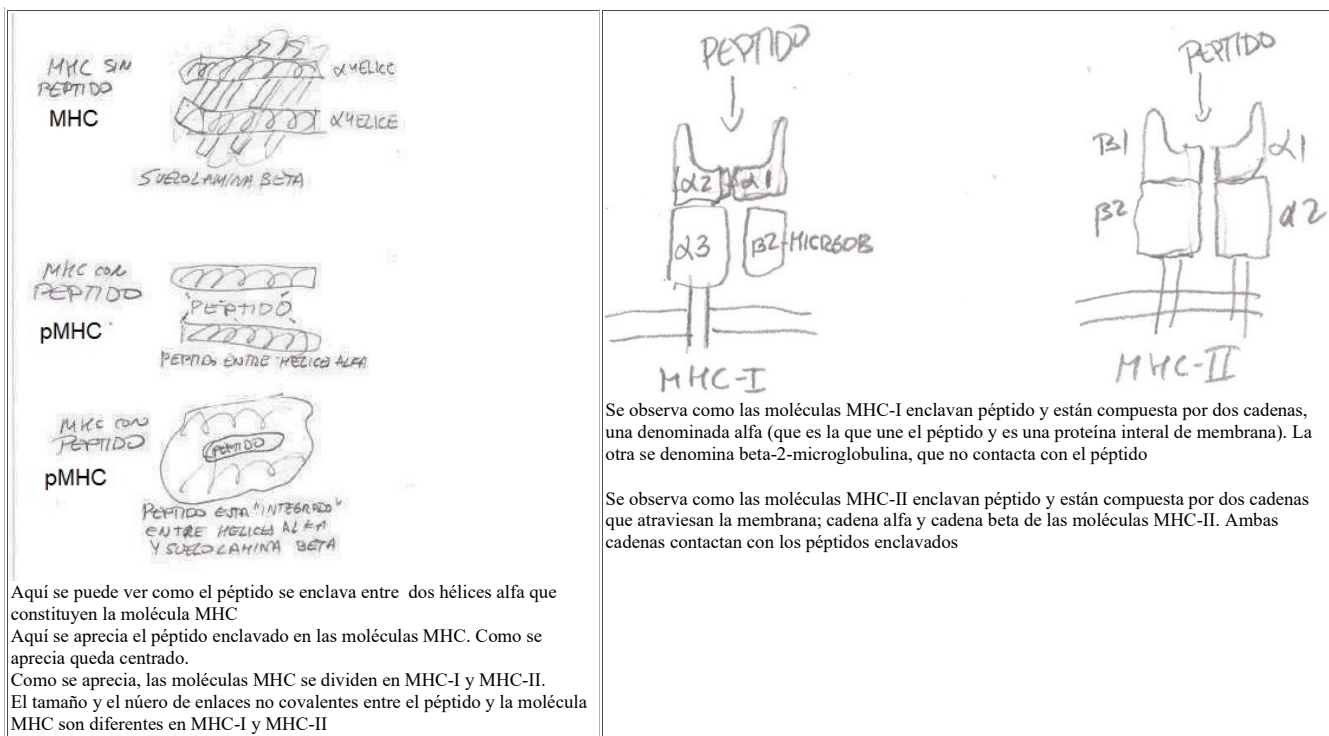 MHC SIN
PEPTIDO
MHC
α HELICE
α HELICE
SUELO LAMINA BETA
MHC CON
PEPTIDO
pMHC
PEPTIDO
PEPTIDO ENTRE HELICES ALFA
MHC CON
PEPTIDO
pMHC
PEPTIDO
PEPTIDO ESTA "INTEGRADO"
ENTRE HELICES ALFA
Y SUELO LAMINA BETA
Aquí se puede ver como el péptido se enclava entre dos hélices alfa que
constituyen la molécula MHC
Aquí se aprecia el péptido enclavado en las moléculas MHC. Como se
aprecia queda centrado.
Como se aprecia, las moléculas MHC se dividen en MHC-I y MHC-II.
El tamaño y el núero de enlaces no covalentes entre el péptido y la molécula
MHC son diferentes en MHC-I y MHC-II
PEPTIDO
α2 α1
α3 β2-MICROGOB
MHC-I
PEPTIDO
β1 α1
β2 α2
MHC-II
Se observa como las moléculas MHC-I enclavan péptido y están compuesta por dos cadenas,
una denominada alfa (que es la que une el péptido y es una proteína interal de membrana). La
otra se denomina beta-2-microglobulina, que no contacta con el péptido
Se observa como las moléculas MHC-II enclavan péptido y están compuesta por dos cadenas
que atraviesan la membrana; cadena alfa y cadena beta de las moléculas MHC-II. Ambas
cadenas contactan con los péptidos enclavados